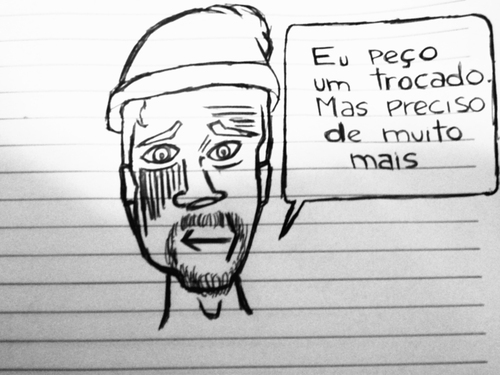 Eu peço
um trocado.
Mas preciso
de muito
mais